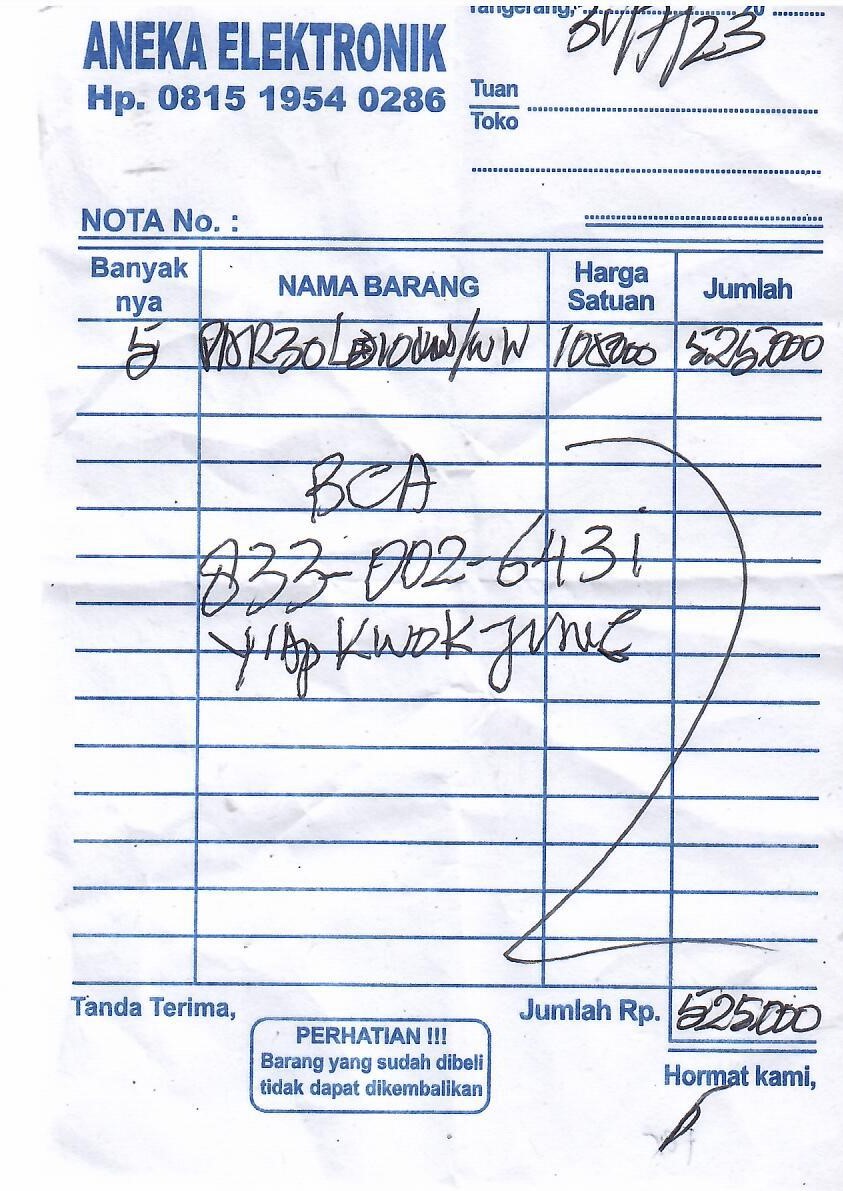 Tangerang, .................... 20 ..........
ANEKA ELEKTRONIK
Hp. 0815 1954 0286
Tuan
Toko
NOTA No. :
Banyak nya NAMA BARANG Harga Satuan Jumlah
5 PAR30 /WW 105000 525.000
BCA
833-002-6431
YIAP KWOK
Tanda Terima, Jumlah Rp. 525.000
PERHATIAN !!!
Barang yang sudah dibeli
tidak dapat dikembalikan
Hormat kami,